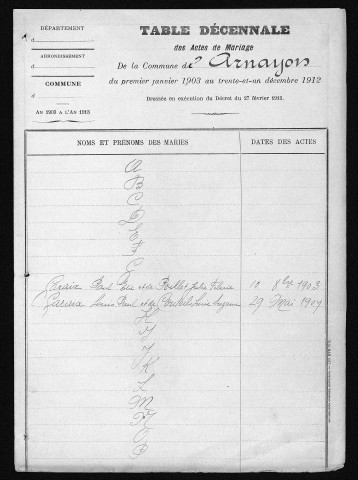 DÉPARTEMENT
d
ARRONDISSEMENT
d
COMMUNE
d
AN 1903 A L'AN 1913
TABLE DÉCENNALE
des Actes de Mariage
De la Commune d'Arnayon
du premier janvier 1903 au trente-et-un décembre 1912
Dressée en exécution du Décret du 27 février 1913.
NOMS ET PRÉNOMS DES MARIÉS
DATES DES ACTES
A
B
C
D
E
F
G
Paul et de Julie 10 8bre 1903
Louis Paul et de 29 Mai 1907
H
I
J
K
L
M
N
O
P